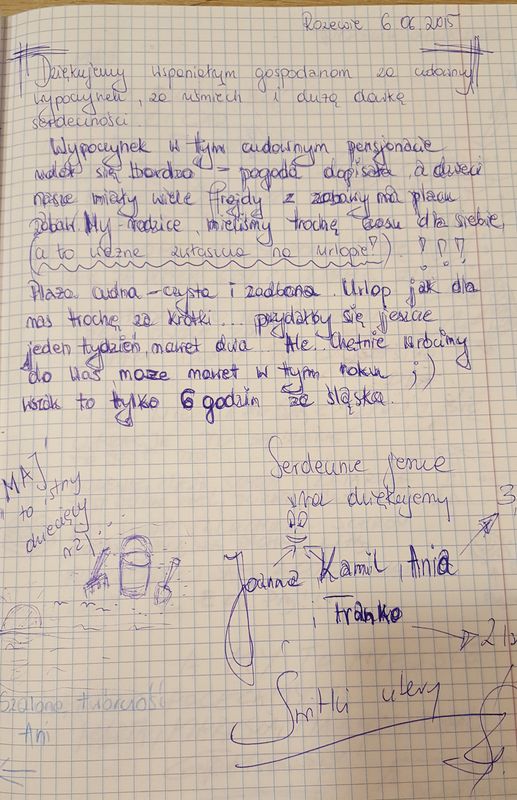 Rozewie 6.06.2015
Dziękujemy wspaniałym gospodarzom za cudowny
wypoczynek, za uśmiech i dużą dawkę
serdeczności.
Wypoczynek w tym cudownym pensjonacie
udał się bardzo - pogoda dopisała, a dzieci
nasze miały wiele frajdy z zabawy na placu
zabaw. My - rodzice, mieliśmy trochę czasu dla siebie,
(a to ważne zwłaszcza na urlopie!). !!!
Plaża cudna - czysta i zadbana. Urlop jak dla
nas trochę za krótki... przydałby się jeszcze
jeden tydzień, nawet dwa... Ale... Chętnie wrócimy
do Was może nawet w tym roku ;)
wszak to tylko 6 godzin ze Śląska.
Serdecznie jeszcze
raz dziękujemy
Joanna Kamil, Ania
i Franko
3
2
MAJ
to
Szalona twórczość
Ani